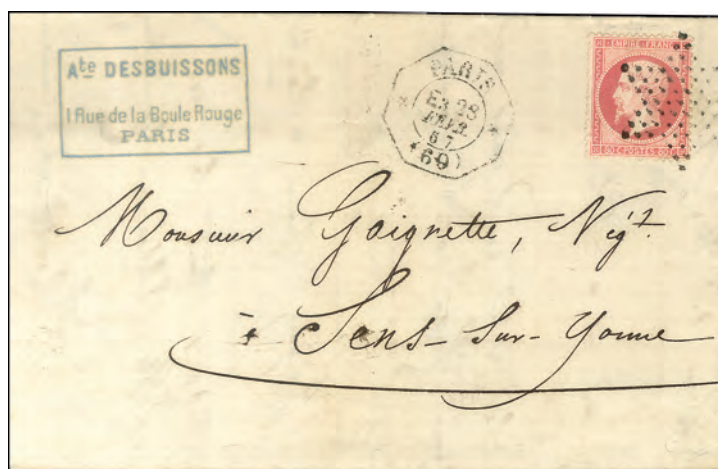 Ate DESBUISSONS
1 Rue de la Boule Rouge
PARIS
PARIS
E3 28
FEVR
67
(60)
EMPIRE FRANC
80 C POSTES 80
Monsieur Goignette, Négt.
à Sens-Sur-Yonne